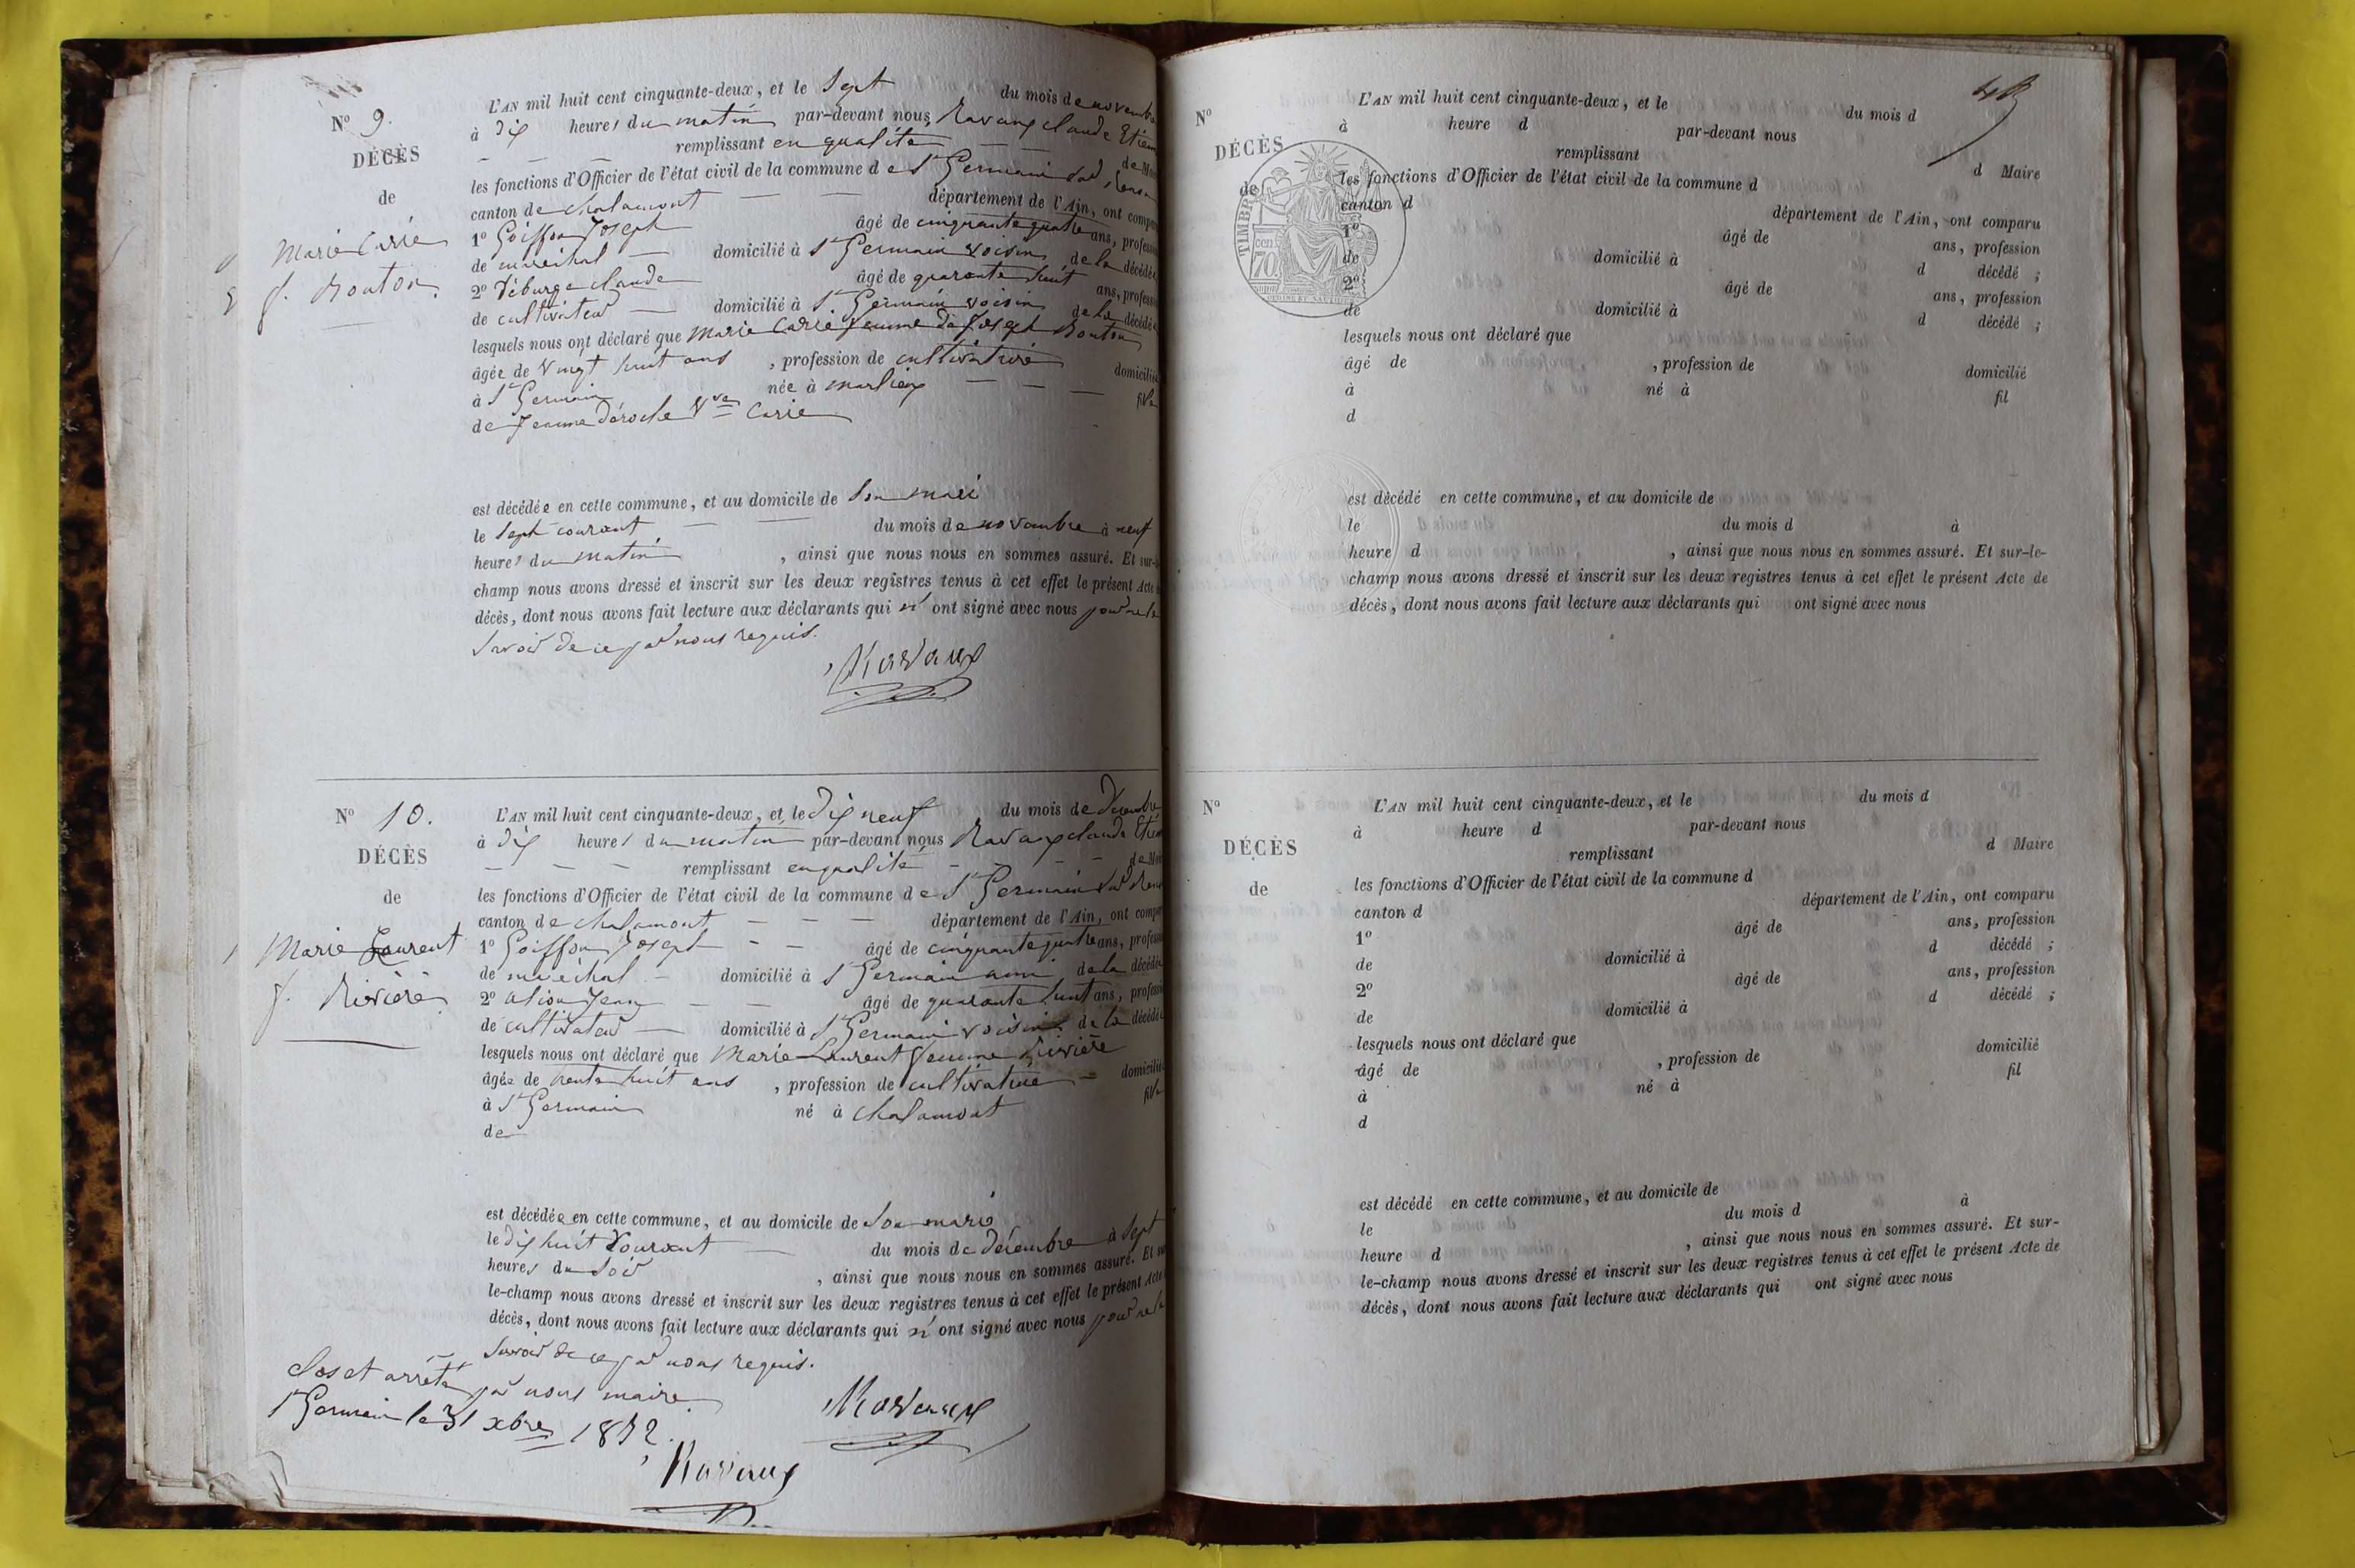 N° 9.
DÉCÈS
de
Marie Carie
f. Bouton.
L'AN mil huit cent cinquante-deux, et le Sept du mois de novembre
à Dix heures du matin par-devant nous, Ravaux claude Etien
remplissant en qualité de M
les fonctions d'Officier de l'état civil de la commune de St Germain sur Renon
canton de chalamont département de l'Ain, ont compa
1° Goiffon Joseph âgé de cinquante quatre ans, profession
de maréchal domicilié à St Germain voisin de la décédée
2° Déburge claude âgé de quarante huit ans, profession
de cultivateur domicilié à St Germain voisin de la décédée
lesquels nous ont déclaré que Marie Carie femme de Joseph Bouton
âgée de vingt huit ans, profession de cultivatrice domiciliée
à St Germain née à marlieux fille
de Jeanne Déroche Vve Carie
est décédée en cette commune, et au domicile de Son mari
le Sept courant du mois de novembre à neuf
heures du matin, ainsi que nous nous en sommes assuré. Et sur-
champ nous avons dressé et inscrit sur les deux registres tenus à cet effet le présent Acte
décès, dont nous avons fait lecture aux déclarants qui n'ont signé avec nous pour ne le
Savoir de ce par nous requis.
Ravaux
N° 10.
DÉCÈS
de
Marie Laurent
f. Rivière
L'AN mil huit cent cinquante-deux, et le Dix neuf du mois de Décembre
à Dix heures du matin par-devant nous Ravaux claude Etien
remplissant en qualité de M
les fonctions d'Officier de l'état civil de la commune de St Germain sur Renon
canton de chalamont département de l'Ain, ont compa
1° Goiffon Joseph âgé de cinquante quatre ans, profess
de maréchal domicilié à St Germain ami de la décédée
2° Alion Jean âgé de quarante huit ans, profess
de cultivateur domicilié à St Germain voisin de la décédée
lesquels nous ont déclaré que Marie Laurent femme Rivière
âgée de trente huit ans, profession de cultivatrice domiciliée
à St Germain né à chalamont fille
de
est décédée en cette commune, et au domicile de Son mari
le dix huit Courant du mois de décembre à Sept
heures du Soir, ainsi que nous nous en sommes assuré. Et su
le-champ nous avons dressé et inscrit sur les deux registres tenus à cet effet le présent Acte
décès, dont nous avons fait lecture aux déclarants qui n'ont signé avec nous pour ne le
Savoir de ce par nous requis.
Clos et arrêté par nous maire
St Germain le 31 xbre 1852.
Ravaux
Ravaux
48
N°
DÉCÈS
de
TIMBRE
cent
70
L'AN mil huit cent cinquante-deux, et le du mois d
à heure d par-devant nous
remplissant d Maire
les fonctions d'Officier de l'état civil de la commune d
canton d département de l'Ain, ont comparu
1° âgé de ans, profession
de domicilié à d décédé ;
2° âgé de ans, profession
de domicilié à d décédé ;
lesquels nous ont déclaré que
âgé de , profession de domicilié
à né à fil
d
est décédé en cette commune, et au domicile de
le du mois d à
heure d , ainsi que nous nous en sommes assuré. Et sur-le-
champ nous avons dressé et inscrit sur les deux registres tenus à cet effet le présent Acte de
décès, dont nous avons fait lecture aux déclarants qui ont signé avec nous
N°
DÉCÈS
de
L'AN mil huit cent cinquante-deux, et le du mois d
à heure d par-devant nous
remplissant d Maire
les fonctions d'Officier de l'état civil de la commune d
canton d département de l'Ain, ont comparu
1° âgé de ans, profession
de domicilié à d décédé ;
2° âgé de ans, profession
de domicilié à d décédé ;
lesquels nous ont déclaré que
âgé de , profession de domicilié
à né à fil
d
est décédé en cette commune, et au domicile de
le du mois d à
heure d , ainsi que nous nous en sommes assuré. Et sur-
le-champ nous avons dressé et inscrit sur les deux registres tenus à cet effet le présent Acte de
décès, dont nous avons fait lecture aux déclarants qui ont signé avec nous